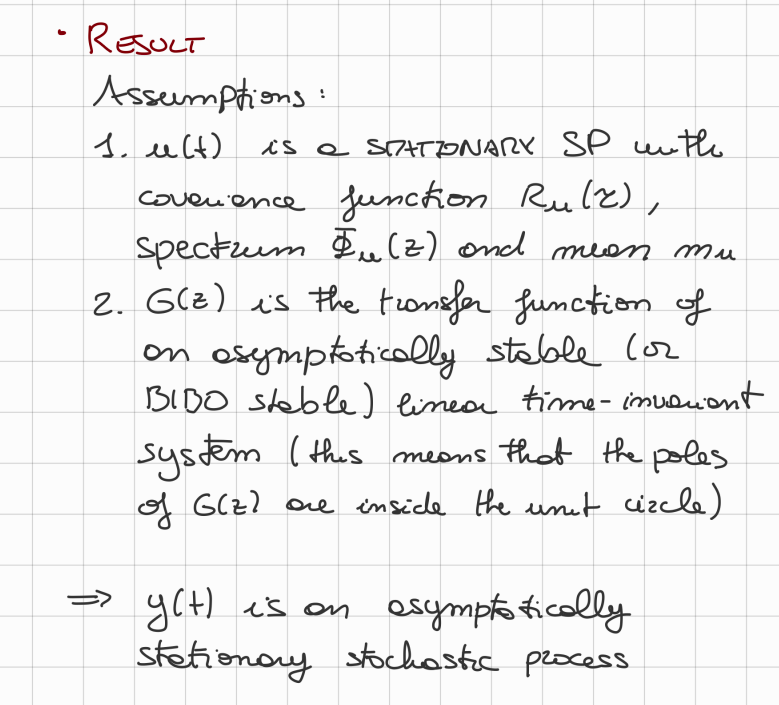 • RESULT
Assumptions:
1. u(t) is a STATIONARY SP with
covariance function Ru(τ),
spectrum Φu(z) and mean mu
2. G(z) is the transfer function of
an asymptotically stable (or
BIBO stable) linear time-invariant
system (this means that the poles
of G(z) are inside the unit circle)
⇒ y(t) is an asymptotically
stationary stochastic process